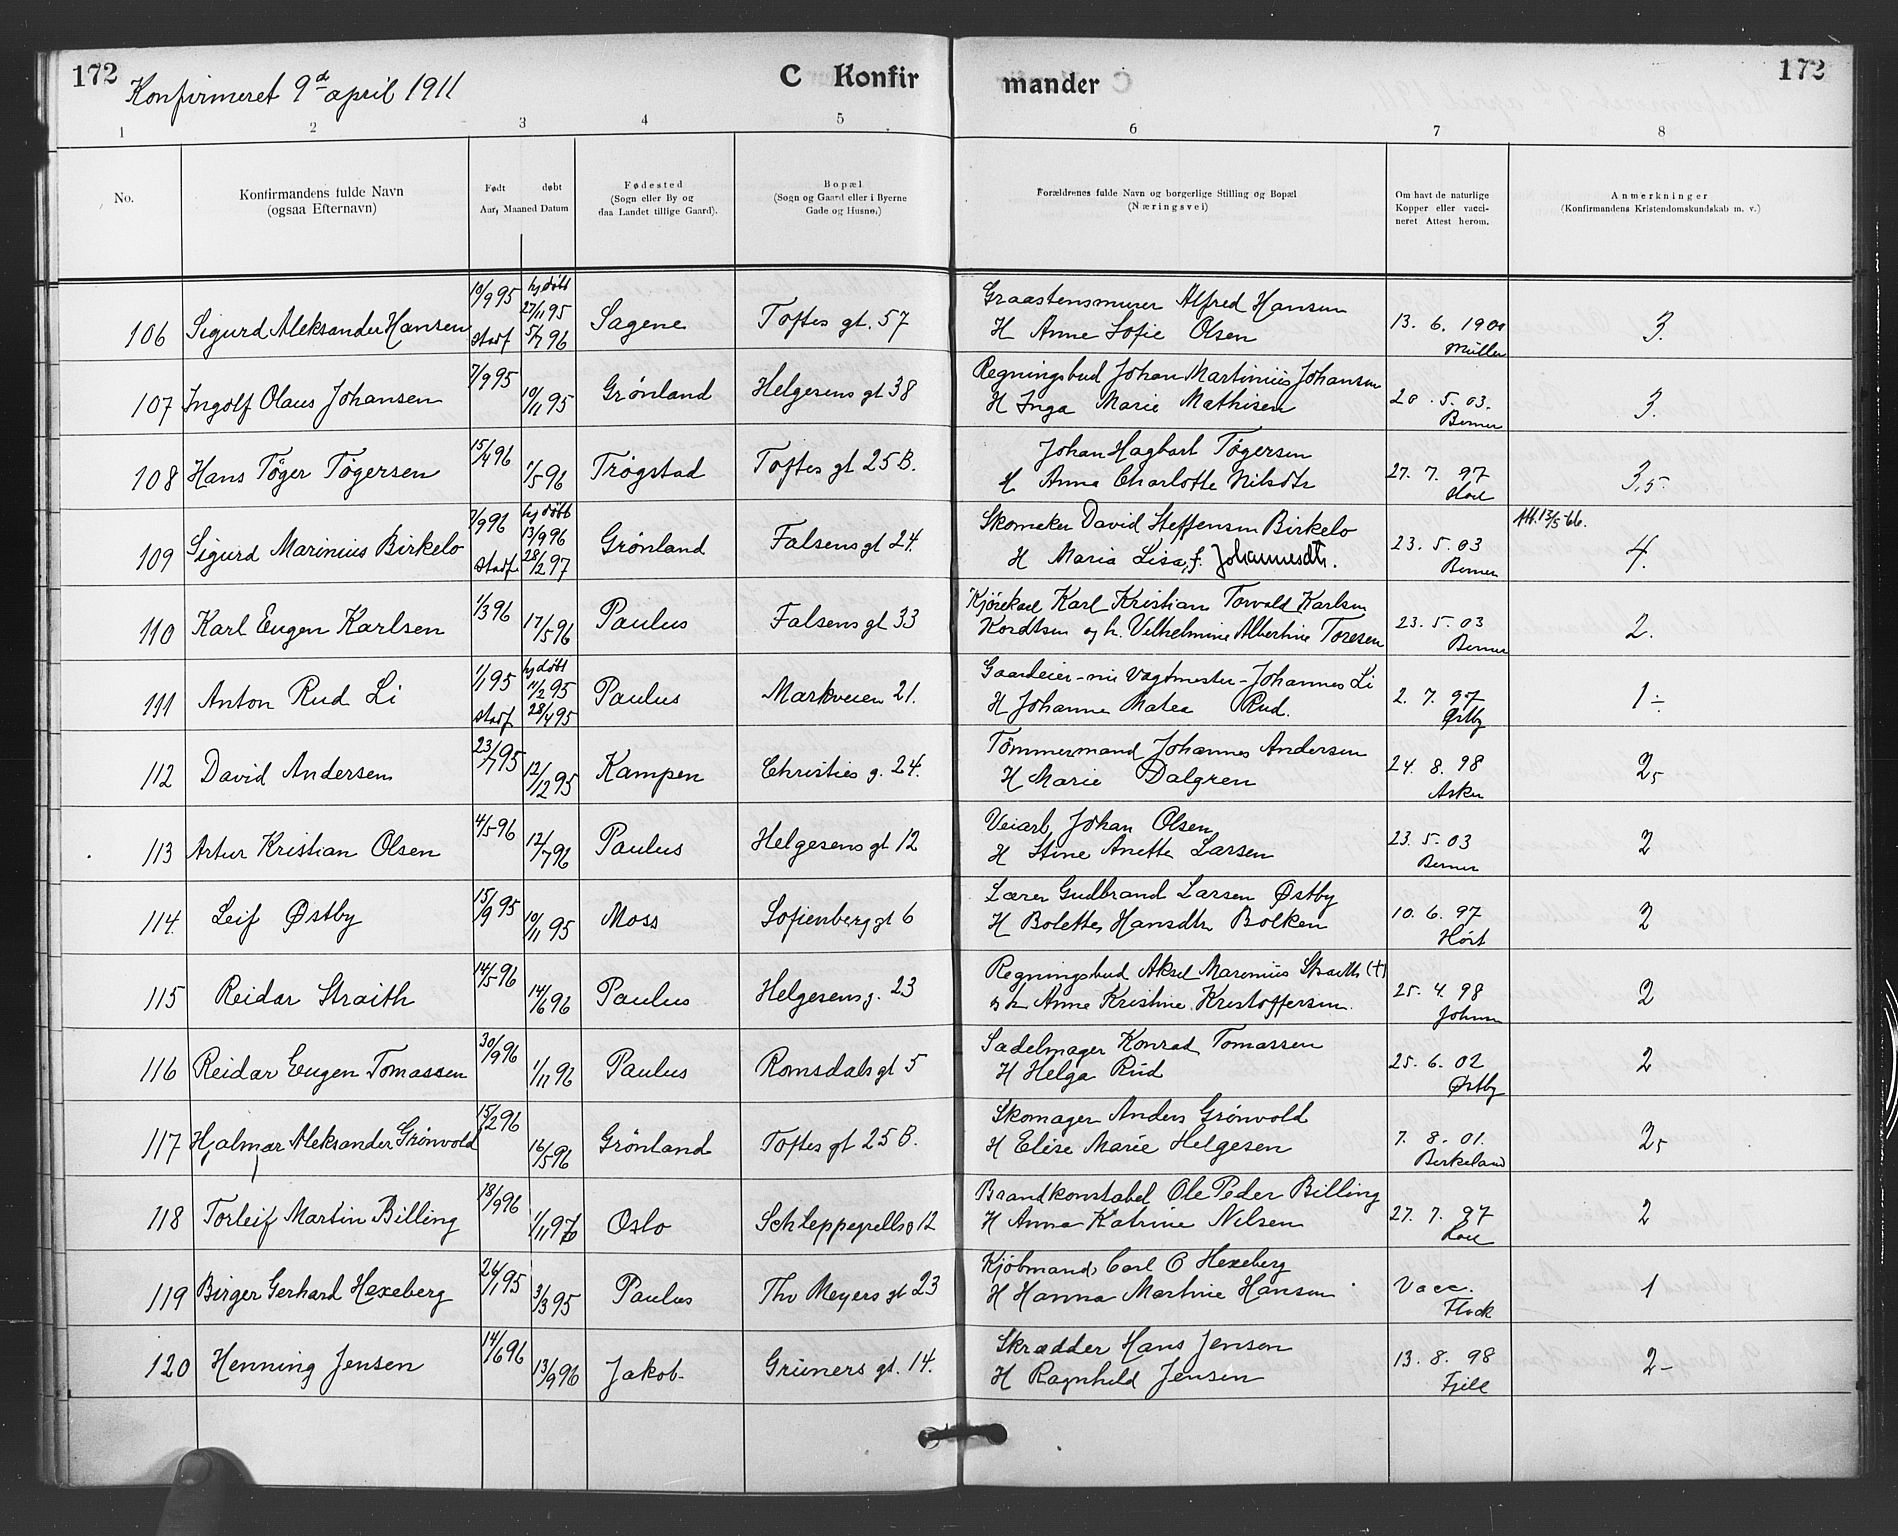 172 Konfirmeret 9d april 1911 C Konfirmander 172
1 2 3 4 5 6 7 8
No. Konfirmandens fulde Navn (ogsaa Efternavn) Født døbt Aar, Maaned Datum Fødested (Sogn eller By og daa Landet tillige Gaard). Bopæl (Sogn og Gaard eller i Byerne Gade og Husno.) Forældrenes fulde Navn og borgerlige Stilling og Bopæl (Næringsvei) Om havt de naturlige Kopper eller vaccineret Attest herom. Anmerkninger (Konfirmandens Kristendomskundskab m. v.)
10/9 95 hj døbt 27/11 95 Graastensmurer Alfred Hansen
106 Sigurd Aleksander Hansen stadf 5/7 96 Sagene Toftes gt. 57 H Anne Sofie Olsen 13. 6. 1900 Müller 3.
7/9 95 Regningsbud Johan Martinius Johansen
107 Ingolf Olaus Johansen 10/11 95 Grønland Helgesens gt 38 H Inga Marie Mathisen 20. 5. 03. Berner 3.
15/4 96 Johan Hagbart Tøgersen
108 Hans Tøger Tøgersen 1/5 96 Trøgstad Toftes gt 25 B. H Anna Charlotte Nilsdtr 27. 7. 97 3,5
7/9 96 hj døbt 13/9 96 Skomaker David Steffensen Birkelo Att. 13/5-66.
109 Sigurd Marinius Birkelo stadf 28/2 97 Grønland Falsens gt 24. H Maria Lisa, f. Johannesdtr. 23. 5. 03 Berner 4.
1/3 96 Kjørekarl Karl Kristian Torvald Karlsen
110 Karl Eugen Karlsen 17/5 96 Paulus Falsens gt 33 Kordtsen og h. Vilhelmine Albertine Toresen 23. 5. 03 Berner 2.
1/1 95 hj døbt 11/2 95 Gaardeier - nu Vagtmester - Johannes Li
111 Anton Rud Li stadf 28/4 95 Paulus Markveien 21. H Johanne Matea Rud. 2. 7. 97 Østby 1 ÷
23/7 95 Tømmermand Johannes Andersen
112 David Andersen 12/12 95 Kampen Christies g. 24. H Marie Dalgren 24. 8. 98 Asker 2,5
4/5 96 Veiarb. Johan Olsen
113 Artur Kristian Olsen 12/7 96 Paulus Helgesens gt 12 H Stine Anette Larsen 23. 5. 03 Berner 2
15/9 95 Lærer Gudbrand Larsen Østby
114. Leif Østby 10/11 95 Moss Sofienberg gt 6 H Bolette Hansdtr Bolken 10. 6. 97 Høst 2
14/5 96 Regningsbud Aksel Marinius Straith (†)
115 Reidar Straith 14/6 96 Paulus Helgesens g. 23 og h Anne Kristine Kristoffersen. 25. 4. 98 2
30/9 96 Sadelmager Konrad Tomassen
116 Reidar Eugen Tomassen 1/11 96 Paulus Romsdals gt 5 H Helga Rud 25. 6. 02 Østby 2
15/2 96 Skomager Anders Grønvold
117 Hjalmar Aleksander Grønvold 16/5 96 Grønland Toftes gt 25 B. H Elise Marie Helgesen 7. 8. 01. Birkeland 2,5
18/9 96 Brandkonstabel Ole Peder Billing
118 Torleif Martin Billing 1/1 97 Oslo Schleppegrells g 12 H Anna Katrine Nilsen 27. 7. 97 2
26/1 95 Kjøbmand Carl O Hexeberg
119 Birger Gerhard Hexeberg 3/3 95 Paulus Thv Meyers gt 23 H Hanna Martine Hansen Vacc. Flock 1
14/6 96 Skrædder Hans Jensen
120 Henning Jensen 13/9 96 Jakob Grüners gt. 14. H Ragnhild Jensen 13. 8. 98 Fjell 2-